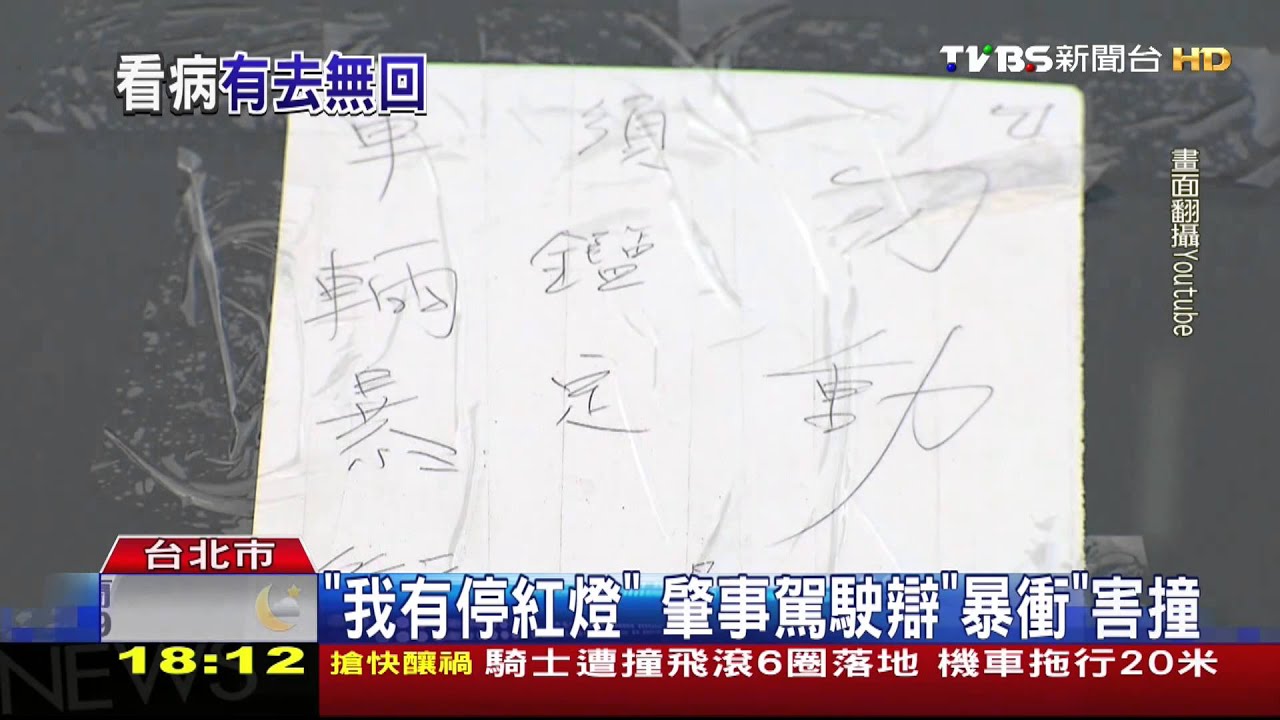 看病有去無回
TVBS新聞台 HD
畫面翻攝Youtube
勿動
須鑑定
車輛暴
台北市
"我有停紅燈" 肇事駕駛辯"暴衝"害撞
18:12
搶快釀禍 騎士遭撞飛滾6圈落地 機車拖行20米
NEWS